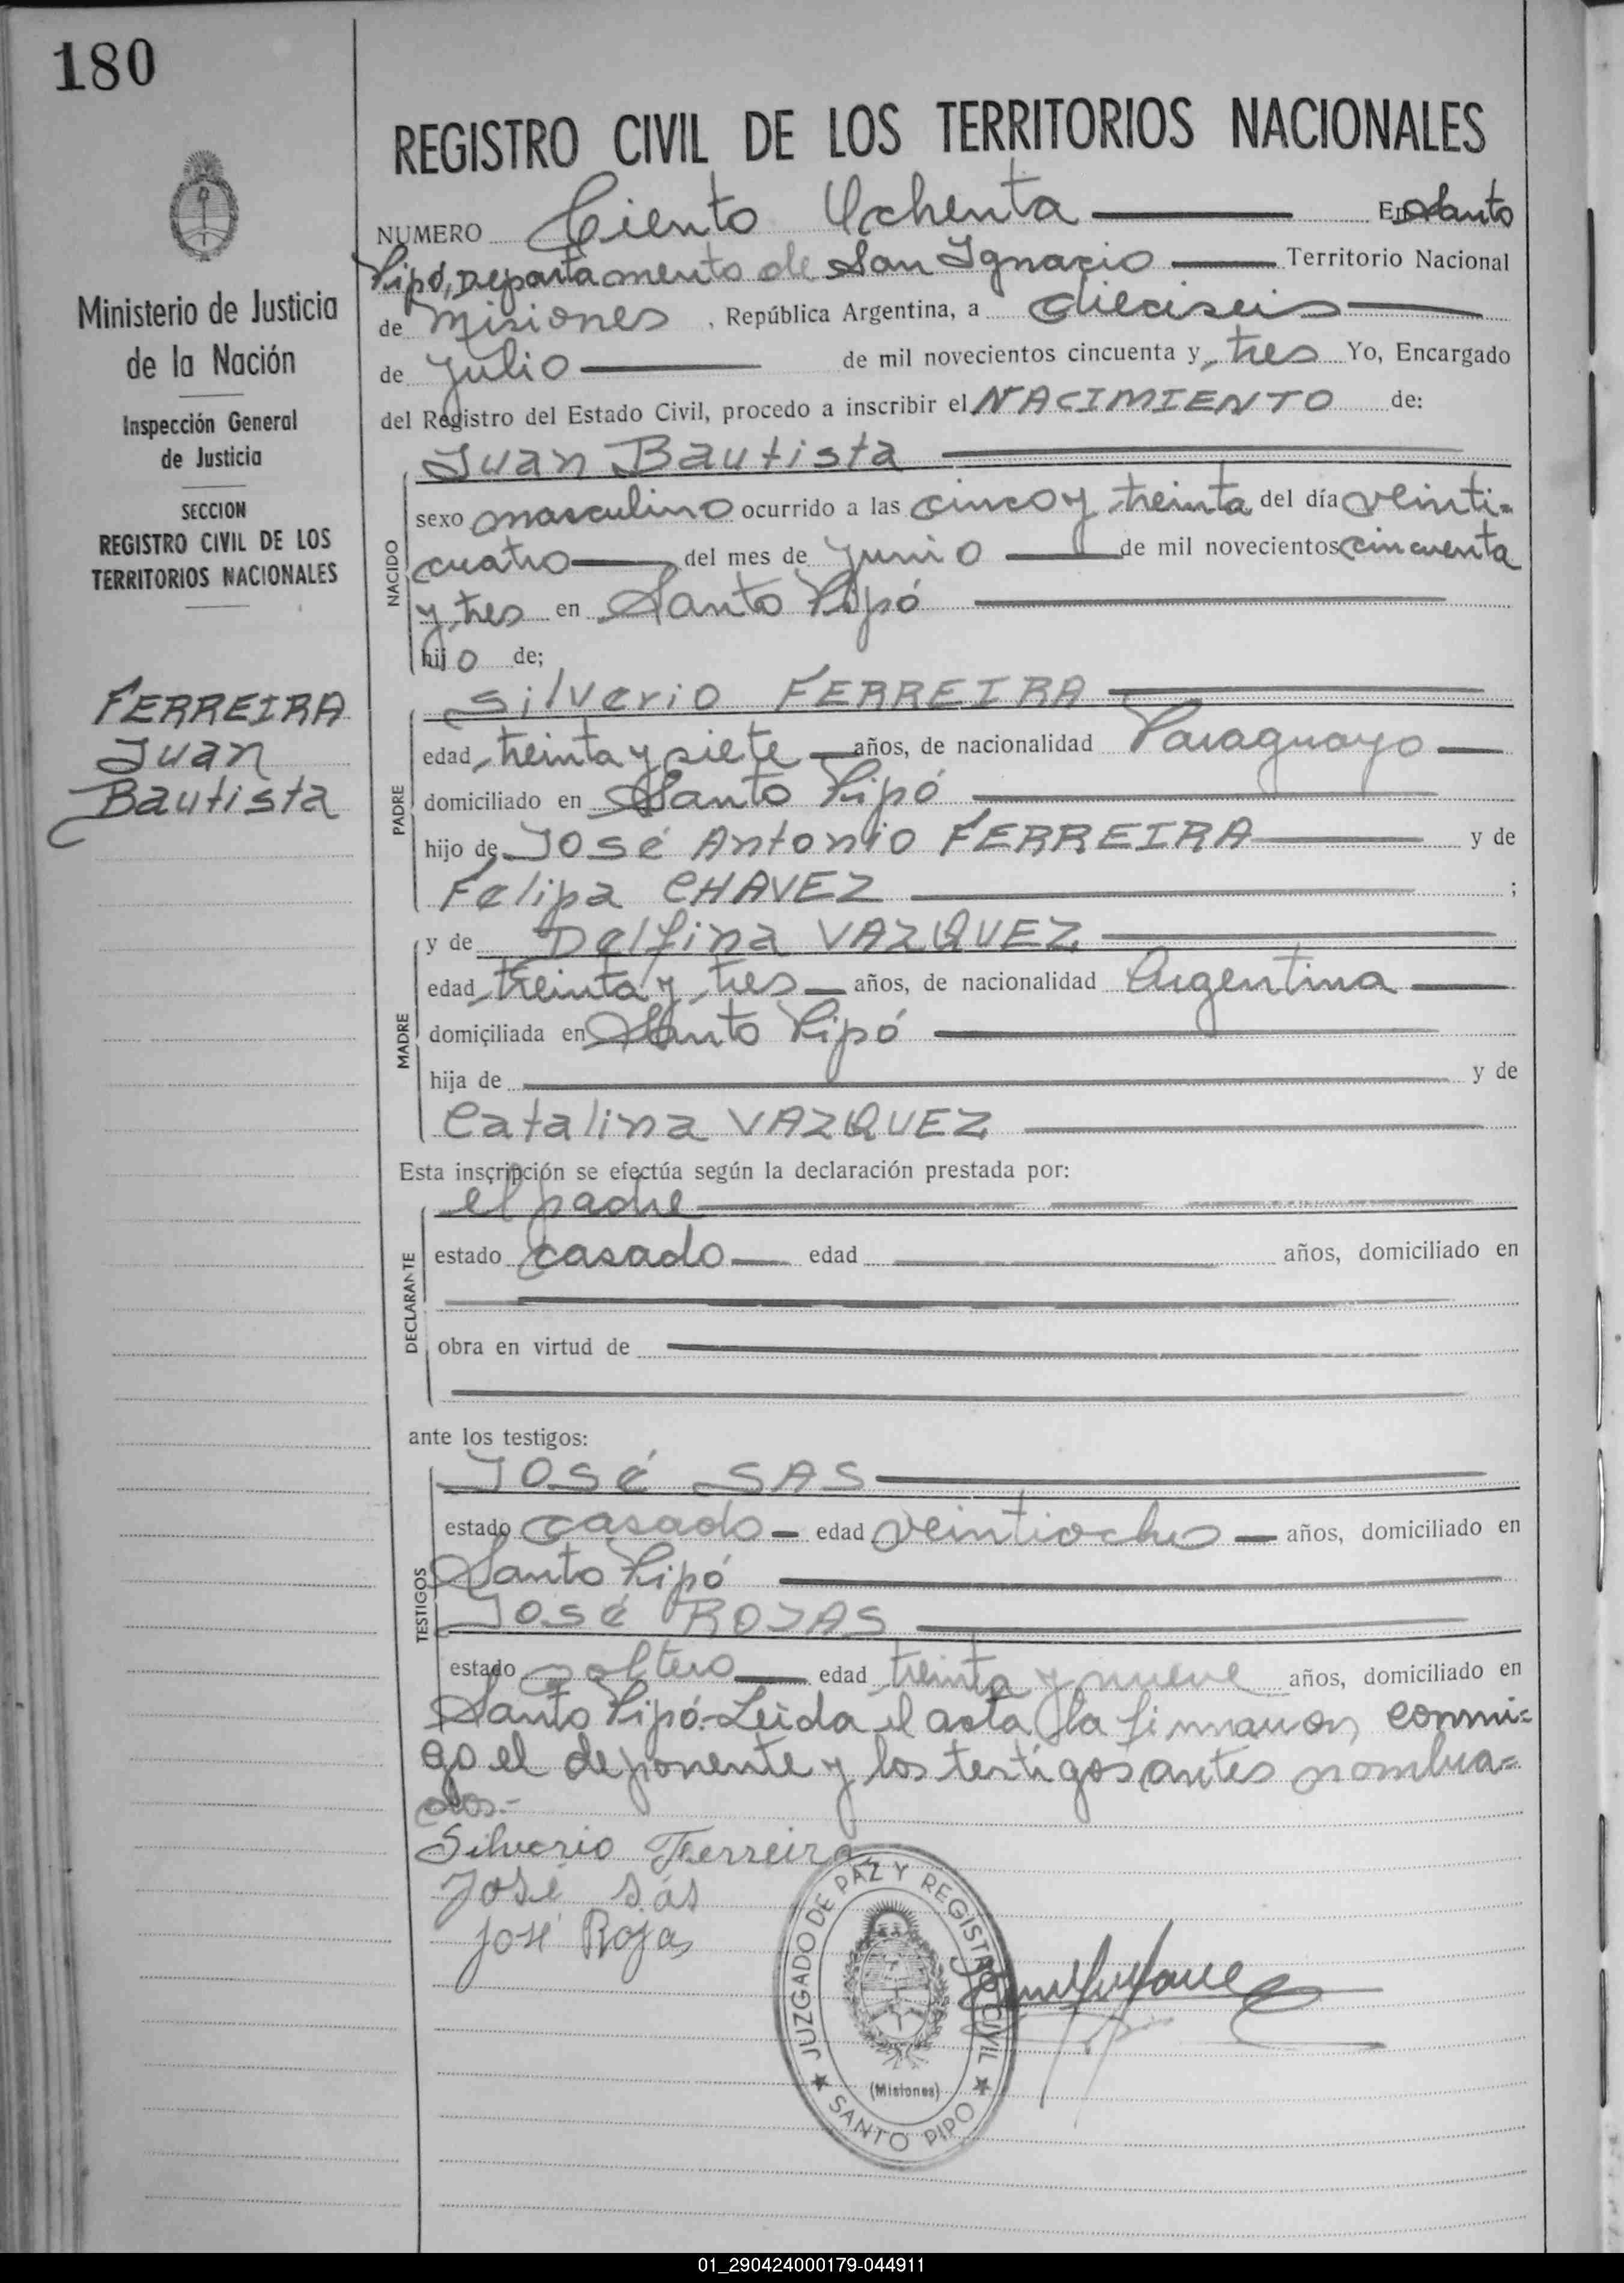 180
REGISTRO CIVIL DE LOS TERRITORIOS NACIONALES
NUMERO Ciento Ochenta En Santo
Pipó, Departamento de San Ignacio Territorio Nacional
de Misiones, República Argentina, a dieciseis
de Julio de mil novecientos cincuenta y tres Yo, Encargado
del Registro del Estado Civil, procedo a inscribir el NACIMIENTO de:
Juan Bautista
NACIDO
sexo masculino ocurrido a las cinco y treinta del día veinti=
cuatro del mes de Junio de mil novecientos cincuenta
y tres en Santo Pipó
hijo de;
Silverio FERREIRA
PADRE
edad treinta y siete años, de nacionalidad Paraguayo
domiciliado en Santo Pipó
hijo de José Antonio FERREIRA y de
Felipa CHAVEZ ;
MADRE
y de Delfina VAZQUEZ
edad treinta y tres años, de nacionalidad Argentina
domiciliada en Santo Pipó
hija de y de
Catalina VAZQUEZ
Esta inscripción se efectúa según la declaración prestada por:
el padre
DECLARANTE
estado casado edad años, domiciliado en
obra en virtud de
ante los testigos:
José SAS
TESTIGOS
estado casado edad veintiocho años, domiciliado en
Santo Pipó
José ROJAS
estado soltero edad treinta y nueve años, domiciliado en
Santo Pipó.- Leida el acta la firmaron conmi=
go el deponente y los testigos antes nombra=
dos.-
Silverio Ferreira
José Sás
José Rojas
JUZGADO DE PAZ Y REGISTRO CIVIL
(Misiones)
SANTO PIPO
Ministerio de Justicia
de la Nación
Inspección General
de Justicia
SECCION
REGISTRO CIVIL DE LOS
TERRITORIOS NACIONALES
FERREIRA
Juan
Bautista
01_290424000179-044911